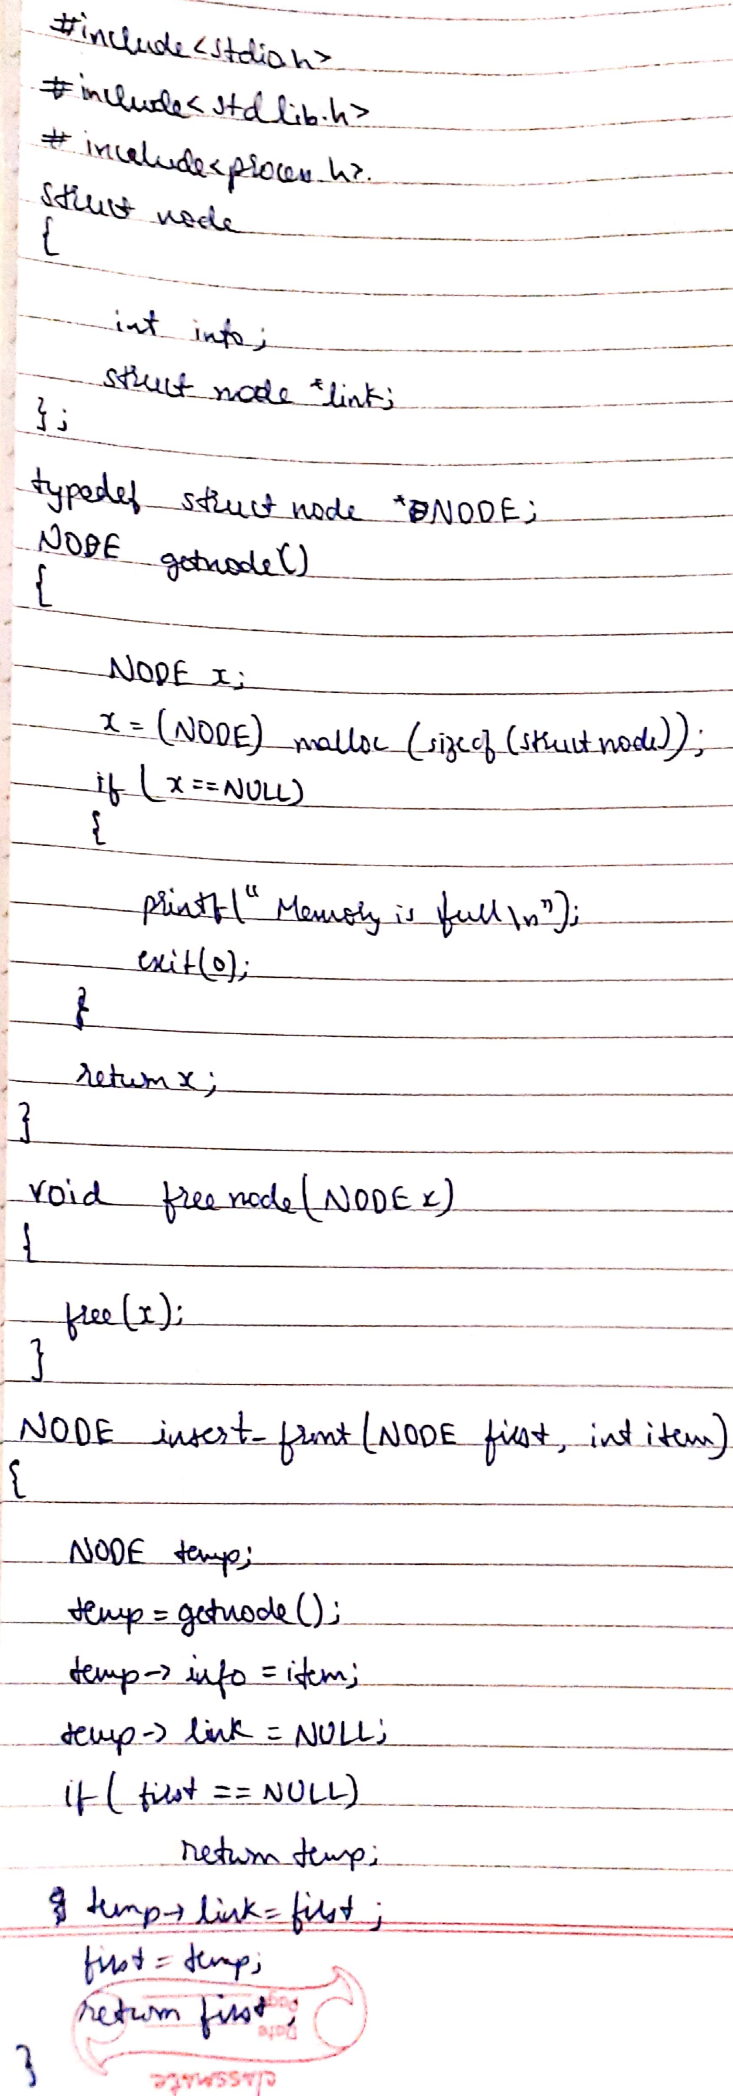 #include<stdio.h>
#include<stdlib.h>
#include<process.h>.
struct node
{
int info;
struct node *link;
};
typedef struct node *NODE;
NODE getnode()
{
NODE x;
x = (NODE) malloc (sizeof(struct node));
if (x==NULL)
{
printf("Memory is full\n");
exit(0);
}
return x;
}
void freenode(NODE x)
{
free(x);
}
NODE insert_front(NODE first, int item)
{
NODE temp;
temp = getnode();
temp->info = item;
temp->link = NULL;
if( first == NULL)
return temp;
temp->link = first;
first = temp;
return first;
}
Page
Date
classmate